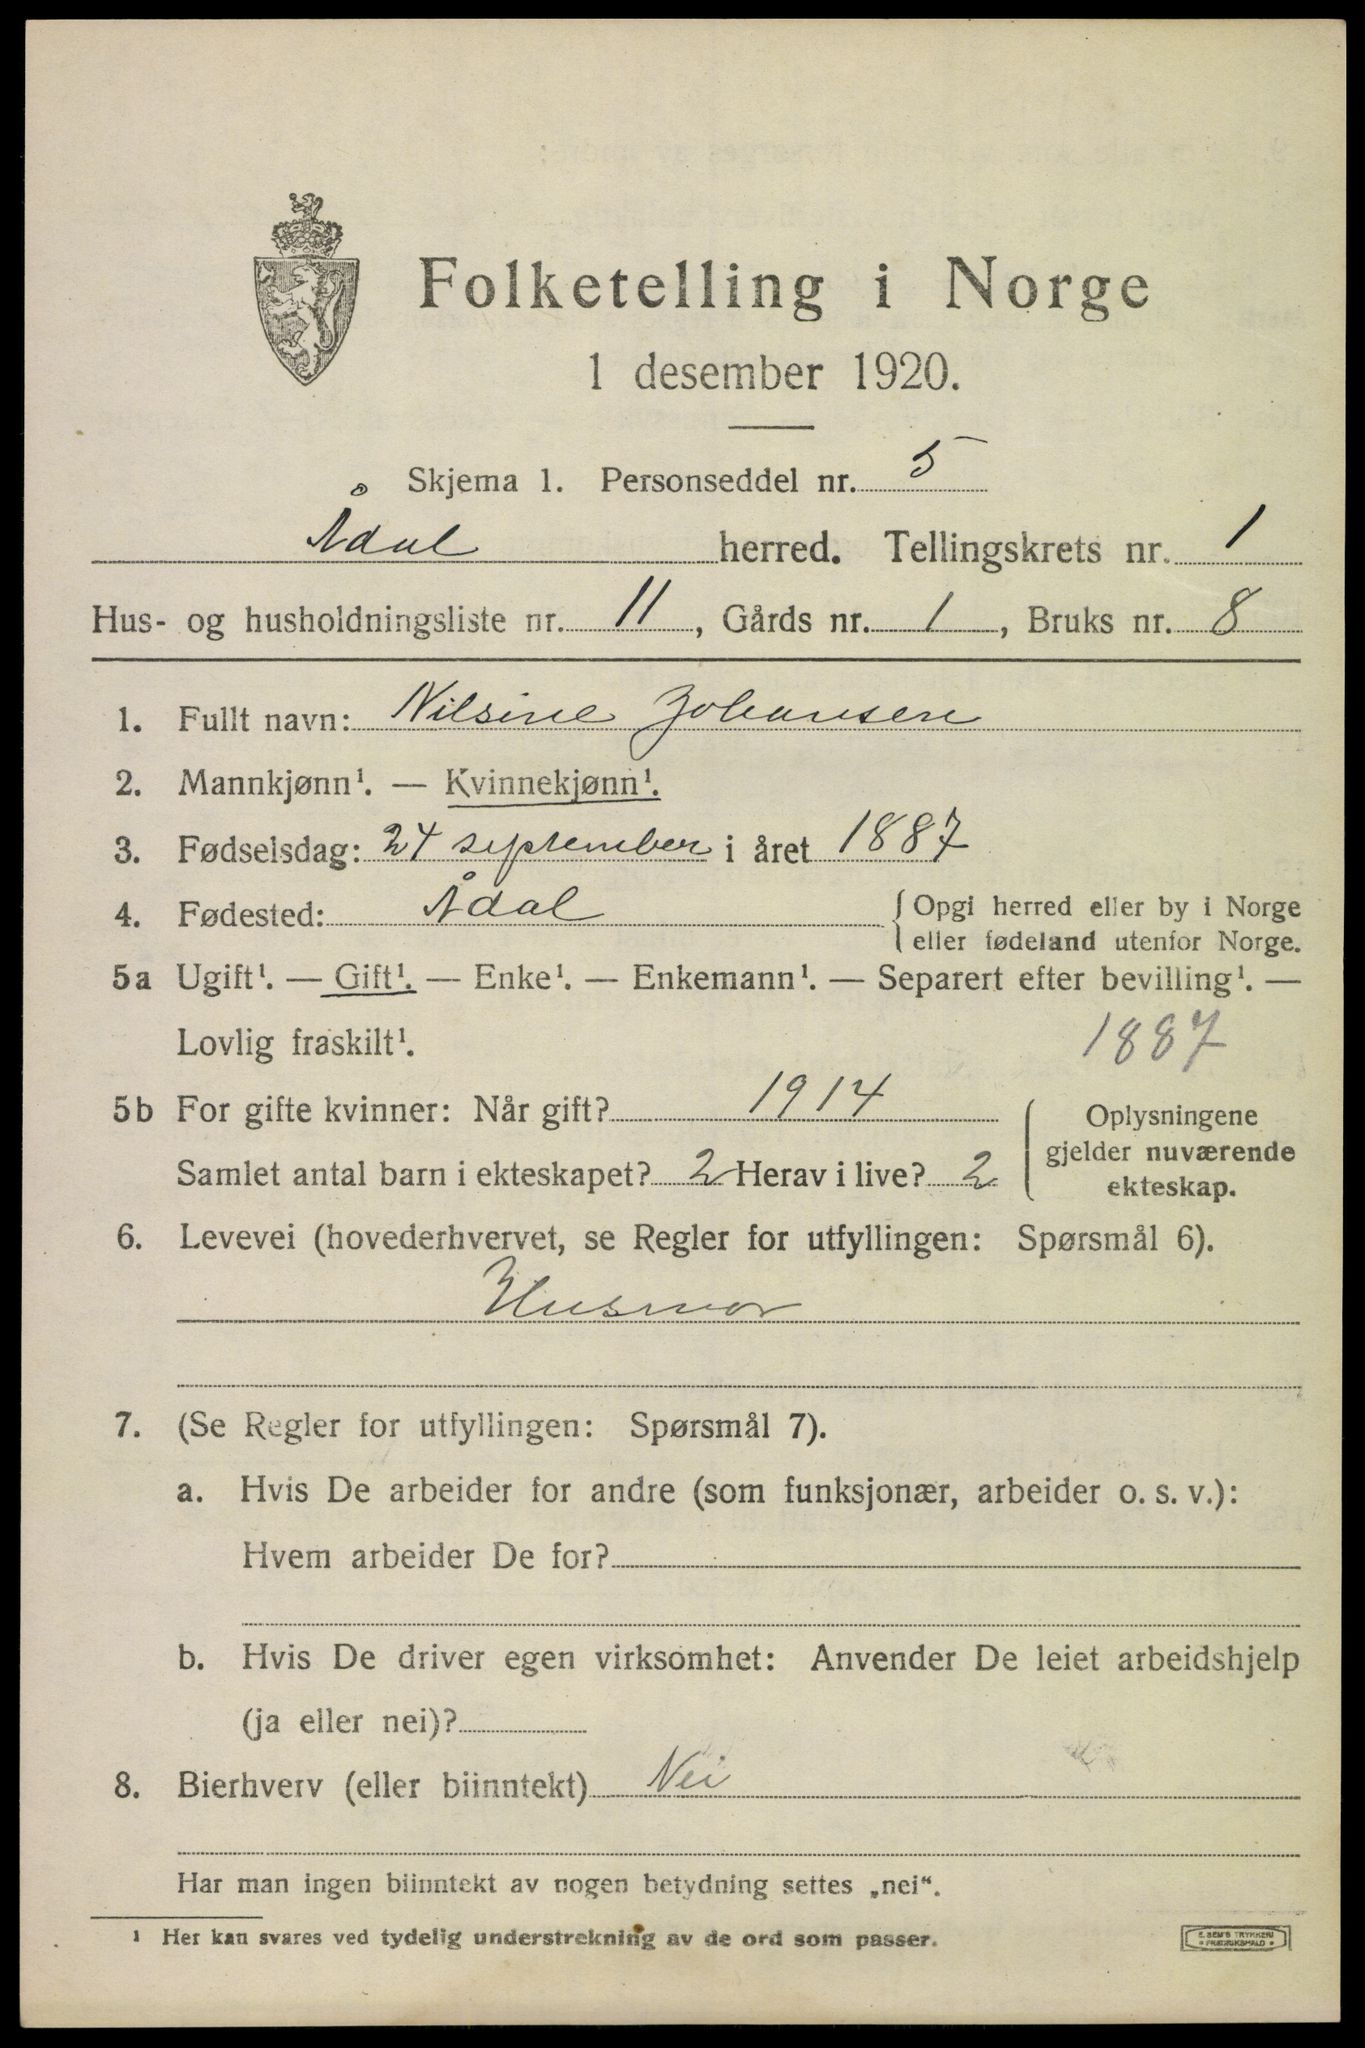 Folketelling i Norge
1 desember 1920.
Skjema 1. Personseddel nr. 5
Ådal herred. Tellingskrets nr. 1
Hus- og husholdningsliste nr. 11, Gårds nr. 1, Bruks nr. 8
1. Fullt navn: Nilsine Johansen
2. Mannkjønn¹. — Kvinnekjønn¹.
3. Fødselsdag: 24 september i året 1887
4. Fødested: Ådal { Opgi herred eller by i Norge
eller fødeland utenfor Norge.
5a Ugift¹. — Gift¹. — Enke¹. — Enkemann¹. — Separert efter bevilling¹. —
Lovlig fraskilt¹. 1887
5b For gifte kvinner: Når gift? 1914
Samlet antal barn i ekteskapet? 2 Herav i live? 2
{ Oplysningene
gjelder nuværende
ekteskap.
6. Levevei (hovederhvervet, se Regler for utfyllingen: Spørsmål 6).
Husmor
7. (Se Regler for utfyllingen: Spørsmål 7).
a. Hvis De arbeider for andre (som funksjonær, arbeider o. s. v.):
Hvem arbeider De for?
b. Hvis De driver egen virksomhet: Anvender De leiet arbeidshjelp
(ja eller nei)?
8. Bierhverv (eller biinntekt) Nei
Har man ingen biinntekt av nogen betydning settes „nei“.
¹ Her kan svares ved tydelig understrekning av de ord som passer.
E. SEM'S TRYKKERI
FREDRIKSHALD